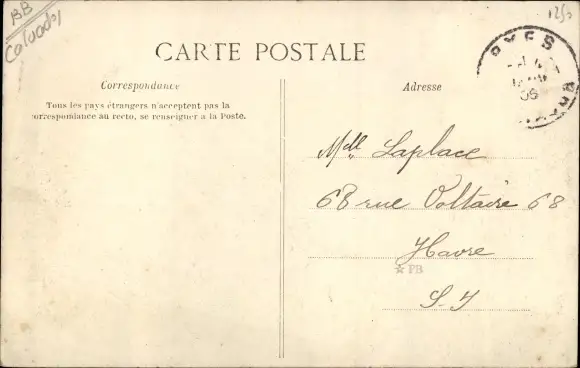 BB
Calvados
1250
CARTE POSTALE
Correspondance
Tous les pays étrangers n'acceptent pas la
correspondance au recto, se renseigner à la Poste.
Adresse
RYES
Mdlle Laplace
68 rue Voltaire 68
Havre
FB
S-I